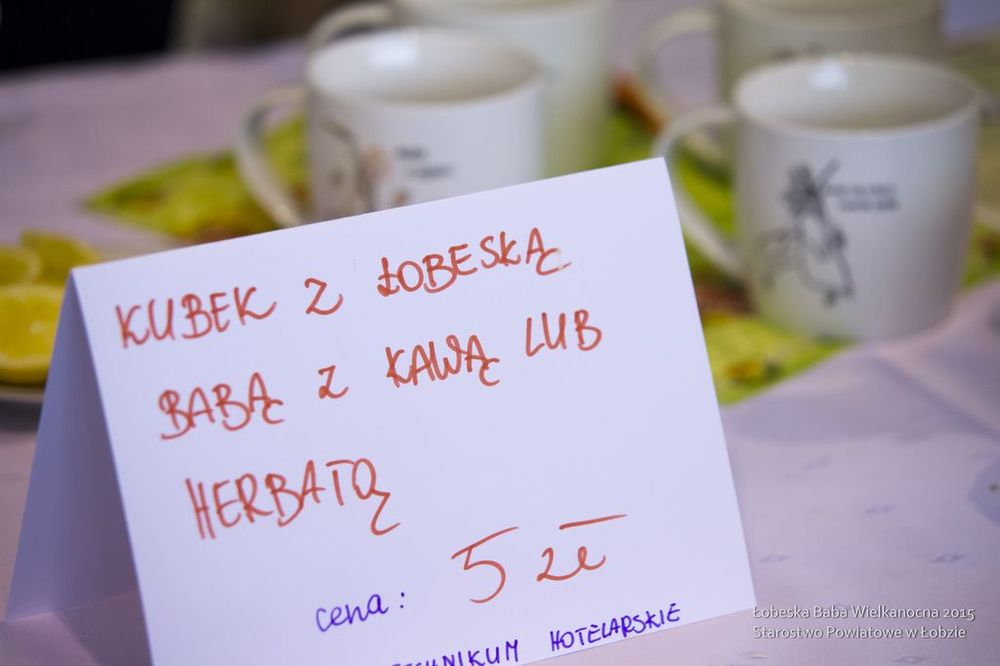 KUBEK Z ŁOBESKĄ
BABĄ Z KAWĄ LUB
HERBATĄ
cena: 5 zł
TECHNIKUM HOTELARSKIE
Łobeska Baba Wielkanocna 2015
Starostwo Powiatowe w Łobzie